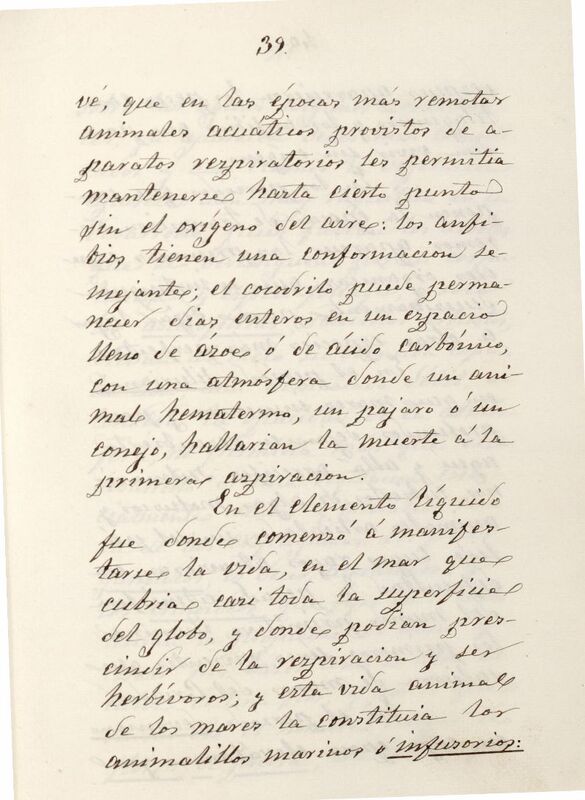 39.
vé, que en las épocas más remotas
animales acuáticos provistos de a-
paratos respiratorios les permitia
mantenerse hasta cierto punto
sin el oxígeno del aire: los anfi-
bios tienen una conformacion se-
mejante; el cocodrilo puede perma-
necer dias enteros en un espacio
lleno de ázoe ó de ácido carbónico,
con una atmósfera donde un ani-
mal hematermo, un pajaro ó un
conejo, hallarian la muerte á la
primera aspiracion.
En el elemento líquido
fue donde comenzó á manifes-
tarse la vida, en el mar que
cubria casi toda la superficie
del globo, y donde podian pres-
cindir de la respiracion y ser
herbívoros; y esta vida animal
de los mares la constituia los
animalillos marinos ó infusorios: